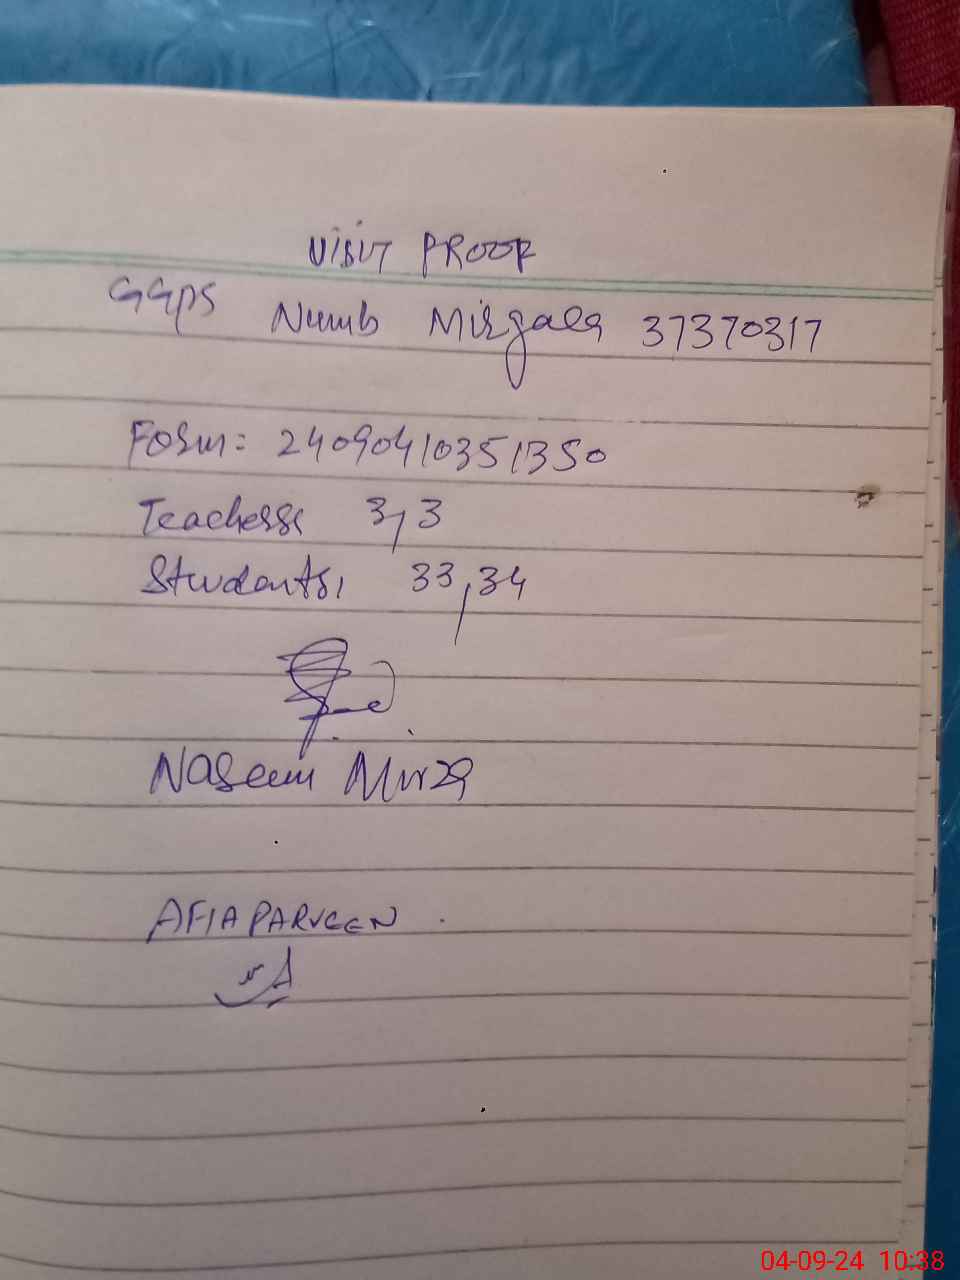 VISIT PROOF
GGPS Numb Mirgala 37370317
Form: 24090410351350
Teachers: 3,3
Students: 33,34
Naseem Mirza
AFIA PARVEEN
04-09-24 10:38